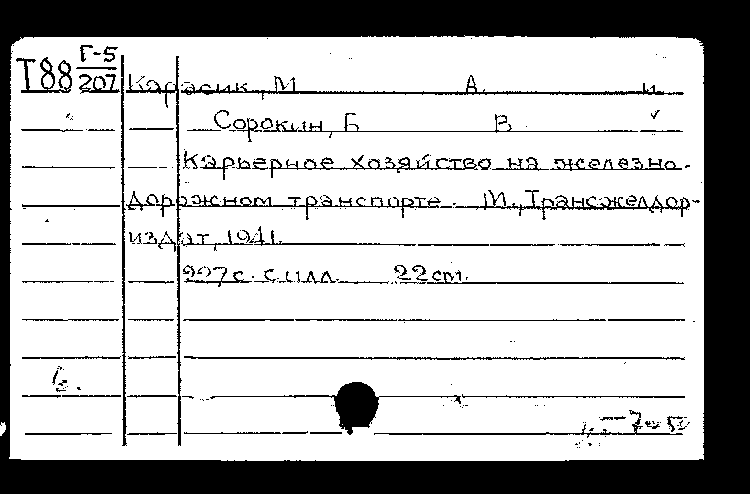 Т88 Г-5
207 Карасик, М А. и
Сорокин, Б В
Карьерное хозяйство на железно-
дорожном транспорте. М., Трансжелдор-
издат, 1941.
227 с. с илл. 22 cm.